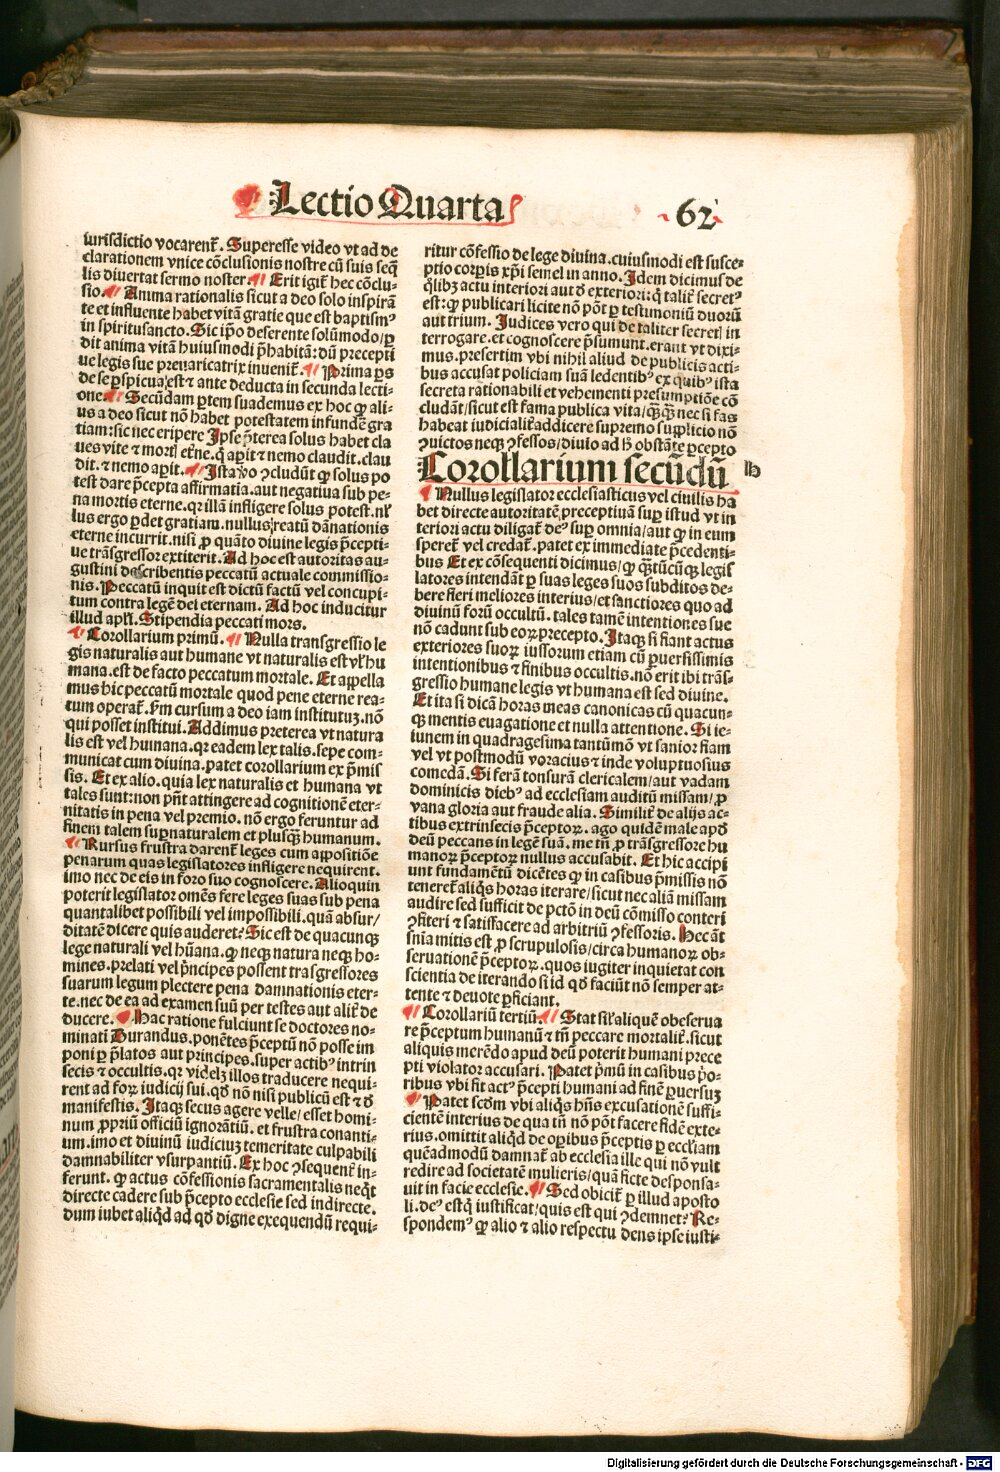 Lectio Quarta
62
iurisdictio vocarent̃. Superesse video vt ad de
clarationem vnice cõclusionis nostre cũ suis seq̃
lis diuertat sermo noster. Erit igit̃ hec cõclu-
sio. Anima rationalis sicut a deo solo inspirã
te et influente habet vitã gratie que est baptismꝰ
in spiritusancto. Sic ip̃o deserente solũmodo/ꝑ
dit anima vitã huiusmodi p̃habitã: dũ precepti
ue legis sue preuaricatrix inuenit̃. Prima ꝑs
de se ꝑspicua est ⁊ ante deducta in secunda lecti-
one. Secũdam ꝑtem suademus ex hoc ꝙ ali-
us a deo sicut nõ habet potestatem infundẽ gra
tiam: sic nec eripere Ipse p̃terea solus habet cla
ues vite ⁊ mort̃ et̃ne. q̃ aꝑit ⁊ nemo claudit. clau
dit. ⁊ nemo aꝑit. Ista ꝟo ꝯcludũt ꝙ solus po
test dare p̃cepta affirmatia. aut negatiua sub pe-
na mortis eterne. qr illã infligere solus potest. nl̃
lus ergo ꝑdet gratiam. nullus reatũ dãnationis
eterne incurrit. nisi ꝓ quãto diuine legis p̃cepti-
ue trãsgressor extiterit. Ad hoc est autoritas au-
gustini describentis peccatũ actuale commissio-
nis. Peccatũ inquit est dictũ factũ vel concupi-
tum contra legẽ dei eternam. Ad hoc inducitur
illud apl̃i. Stipendia peccati mors.
Corollarium primũ. Nulla transgressio le
gis naturalis aut humane vt naturalis est vl̃ hu
mana. est de facto peccatum mortale. Et appella
mus hic peccatũ mortale quod pene eterne rea-
tum operat̃. Fm cursum a deo iam institutuꝫ. nõ
qui posset institui. Addimus preterea vt natura
lis est vel humana. qr eadem lex talis. sepe com-
municat cum diuina. patet corollarium ex p̃mis
sis. Et ex alio. quia lex naturalis et humana vt
tales sunt: non pñt attingere ad cognitionẽ eter-
nitatis in pena vel premio. nõ ergo feruntur ad
finem talem suꝑnaturalem et plusq̃ humanum.
Rursus frustra darent̃ leges cum appositiõe
penarum quas legislatores infligere nequirent.
imo nec de eis in foro suo cognoscere. Alioquin
poterit legislator omẽs fere leges suas sub pena
quantalibet possibili vel impossibili. quã absur/
ditatẽ dicere quis auderet? Sic est de quacunqꝫ
lege naturali vel hũana. ꝙ neqꝫ natura neqꝫ ho-
mines. prelati vel p̃ncipes possent trãsgressores
suarum legum plectere pena damnationis eter-
te. nec de ea ad examen suũ per testes aut alit̃ de
ducere. Hac ratione fulciunt se doctores no-
minati Durandus. ponẽtes p̃ceptũ nõ posse im
poni ꝑ p̃latos aut principes. super actibꝰ intrin
secis ⁊ occultis. qr videlꝫ illos traducere nequi-
rent ad forꝫ iudicij sui. qd̃ nõ nisi publicũ est ⁊ d̃
manifestis. Itaqꝫ secus agere velle/ esset homi-
num ꝓpriũ officiũ ignorãtiũ. et frustra conanti-
um. imo et diuinũ iudiciuꝫ temeritate culpabili
damnabiliter vsurpantiũ. Ex hoc ꝯsequent̃ in-
ferunt. ꝙ actus cõfessionis sacramentalis neq̃t
directe cadere sub p̃cepto ecclesie sed indirecte.
dum iubet aliq̃d ad qd̃ digne exequendũ requi-
ritur cõfessio de lege diuina. cuiusmodi est susce-
ptio corꝑis xp̃i semel in anno. Idem dicimus de
q̃libꝫ actu interiori aut d̃ exteriori: q̃ talit̃ secretꝰ
est: ꝙ publicari licite nõ põt ꝑ testimoniũ duorũ
aut trium. Judices vero qui de taliter secret̃ in
terrogare. et cognoscere p̃sumunt. erant vt dixi-
mus. presertim vbi nihil aliud de publicis acti-
bus accusat policiam suã ledentibꝰ ex quibꝰ ista
secreta rationabili et vehementi presumptiõe cõ
cludãt/ sicut est fama publica vita/ q̃q̃ nec si fas
habeat iudicialit̃ addicere supremo supplicio nõ
ꝯuictos neqꝫ ꝯfessos/ diuio ad h̃ obstãte p̃cepto
Corollarium secũdũ
h
Nullus legislator ecclesiasticus vel ciuilis ha
bet directe autoritatẽ preceptiuã suꝑ istud vt in
teriori actu diligat̃ deꝰ suꝑ omnia/ aut ꝙ in eum
speret̃ vel credat̃. patet ex immediate p̃cedenti-
bus Et ex cõsequenti dicimus/ ꝙ q̃tũcũqꝫ legis
latores intendãt ꝑ suas leges suos subditos de-
bere fieri meliores interius/ et sanctiores quo ad
diuinũ forũ occultũ. tales tamẽ intentiones sue
nõ cadunt sub eoꝝ precepto. Itaqꝫ si fiant actus
exteriores suoꝝ iussorum etiam cũ ꝑuersissimis
intentionibus ⁊ finibus occultis. nõ erit ibi trãs-
gressio humane legis vt humana est sed diuine.
Et ita si dicã horas meas canonicas cũ quacun-
qꝫ mentis euagatione et nulla attentione. Si ie-
iunem in quadragesima tantũmõ vt sanior fiam
vel vt postmodũ voracius ⁊ inde voluptuosius
comedã. Si ferã tonsurã clericalem/ aut vadam
dominicis diebꝰ ad ecclesiam auditũ missam/ ꝓ
vana gloria aut fraude alia. Similit̃ de alijs ac-
tibus extrinsecis p̃ceptoꝝ. ago quidẽ male apd̃
deũ peccans in legẽ suã. me tñ ꝓ trãsgressore hu
manoꝝ p̃ceptoꝝ nullus accusabit. Et hic accipi
unt fundamẽtũ dicẽtes ꝙ in casibus p̃missis nõ
teneret̃ aliq̃s horas iterare/ sicut nec aliã missam
audire sed sufficit de pctõ in deũ cõmisso conteri
ꝯfiteri ⁊ satisfacere ad arbitriũ ꝯfessoris. Hec añt
sñia mitis est ꝓ scrupulosis/ circa humanoꝝ ob-
seruationẽ p̃ceptoꝝ. quos iugiter inquietat con
scientia de iterando si id qd̃ faciũt nõ semper at-
tente ⁊ deuote ꝑficiant.
Corollariũ tertiũ. Stat sil̃ aliquẽ obserua
re p̃ceptum humanũ ⁊ tñ peccare mortalit̃. sicut
aliquis merẽdo apud deũ poterit humani prece
pti violator accusari. Patet p̃mũ in casibus p̃o-
ribus vbi fit actꝰ p̃cepti humani ad finẽ ꝑuersuꝫ
Patet scd̃m vbi aliq̃s hñs excusationẽ suffi-
cientẽ interius de qua tñ nõ põt facere fidẽ exte-
rius. omittit aliq̃d de oꝑibus p̃ceptis ꝑ eccl̃iam
quẽadmodũ damnat̃ ab ecclesia ille qui nõ vult
redire ad societatẽ mulieris/ quã ficte desponsa-
uit in facie ecclesie. Sed obicit̃ ꝑ illud aposto
li. deꝰ est q̃ iustificat/ quis est qui ꝯdemnet? Re-
spondemꝰ ꝙ alio ⁊ alio respectu deus ipse iusti-
Digitalisierung gefördert durch die Deutsche Forschungsgemeinschaft - DFG